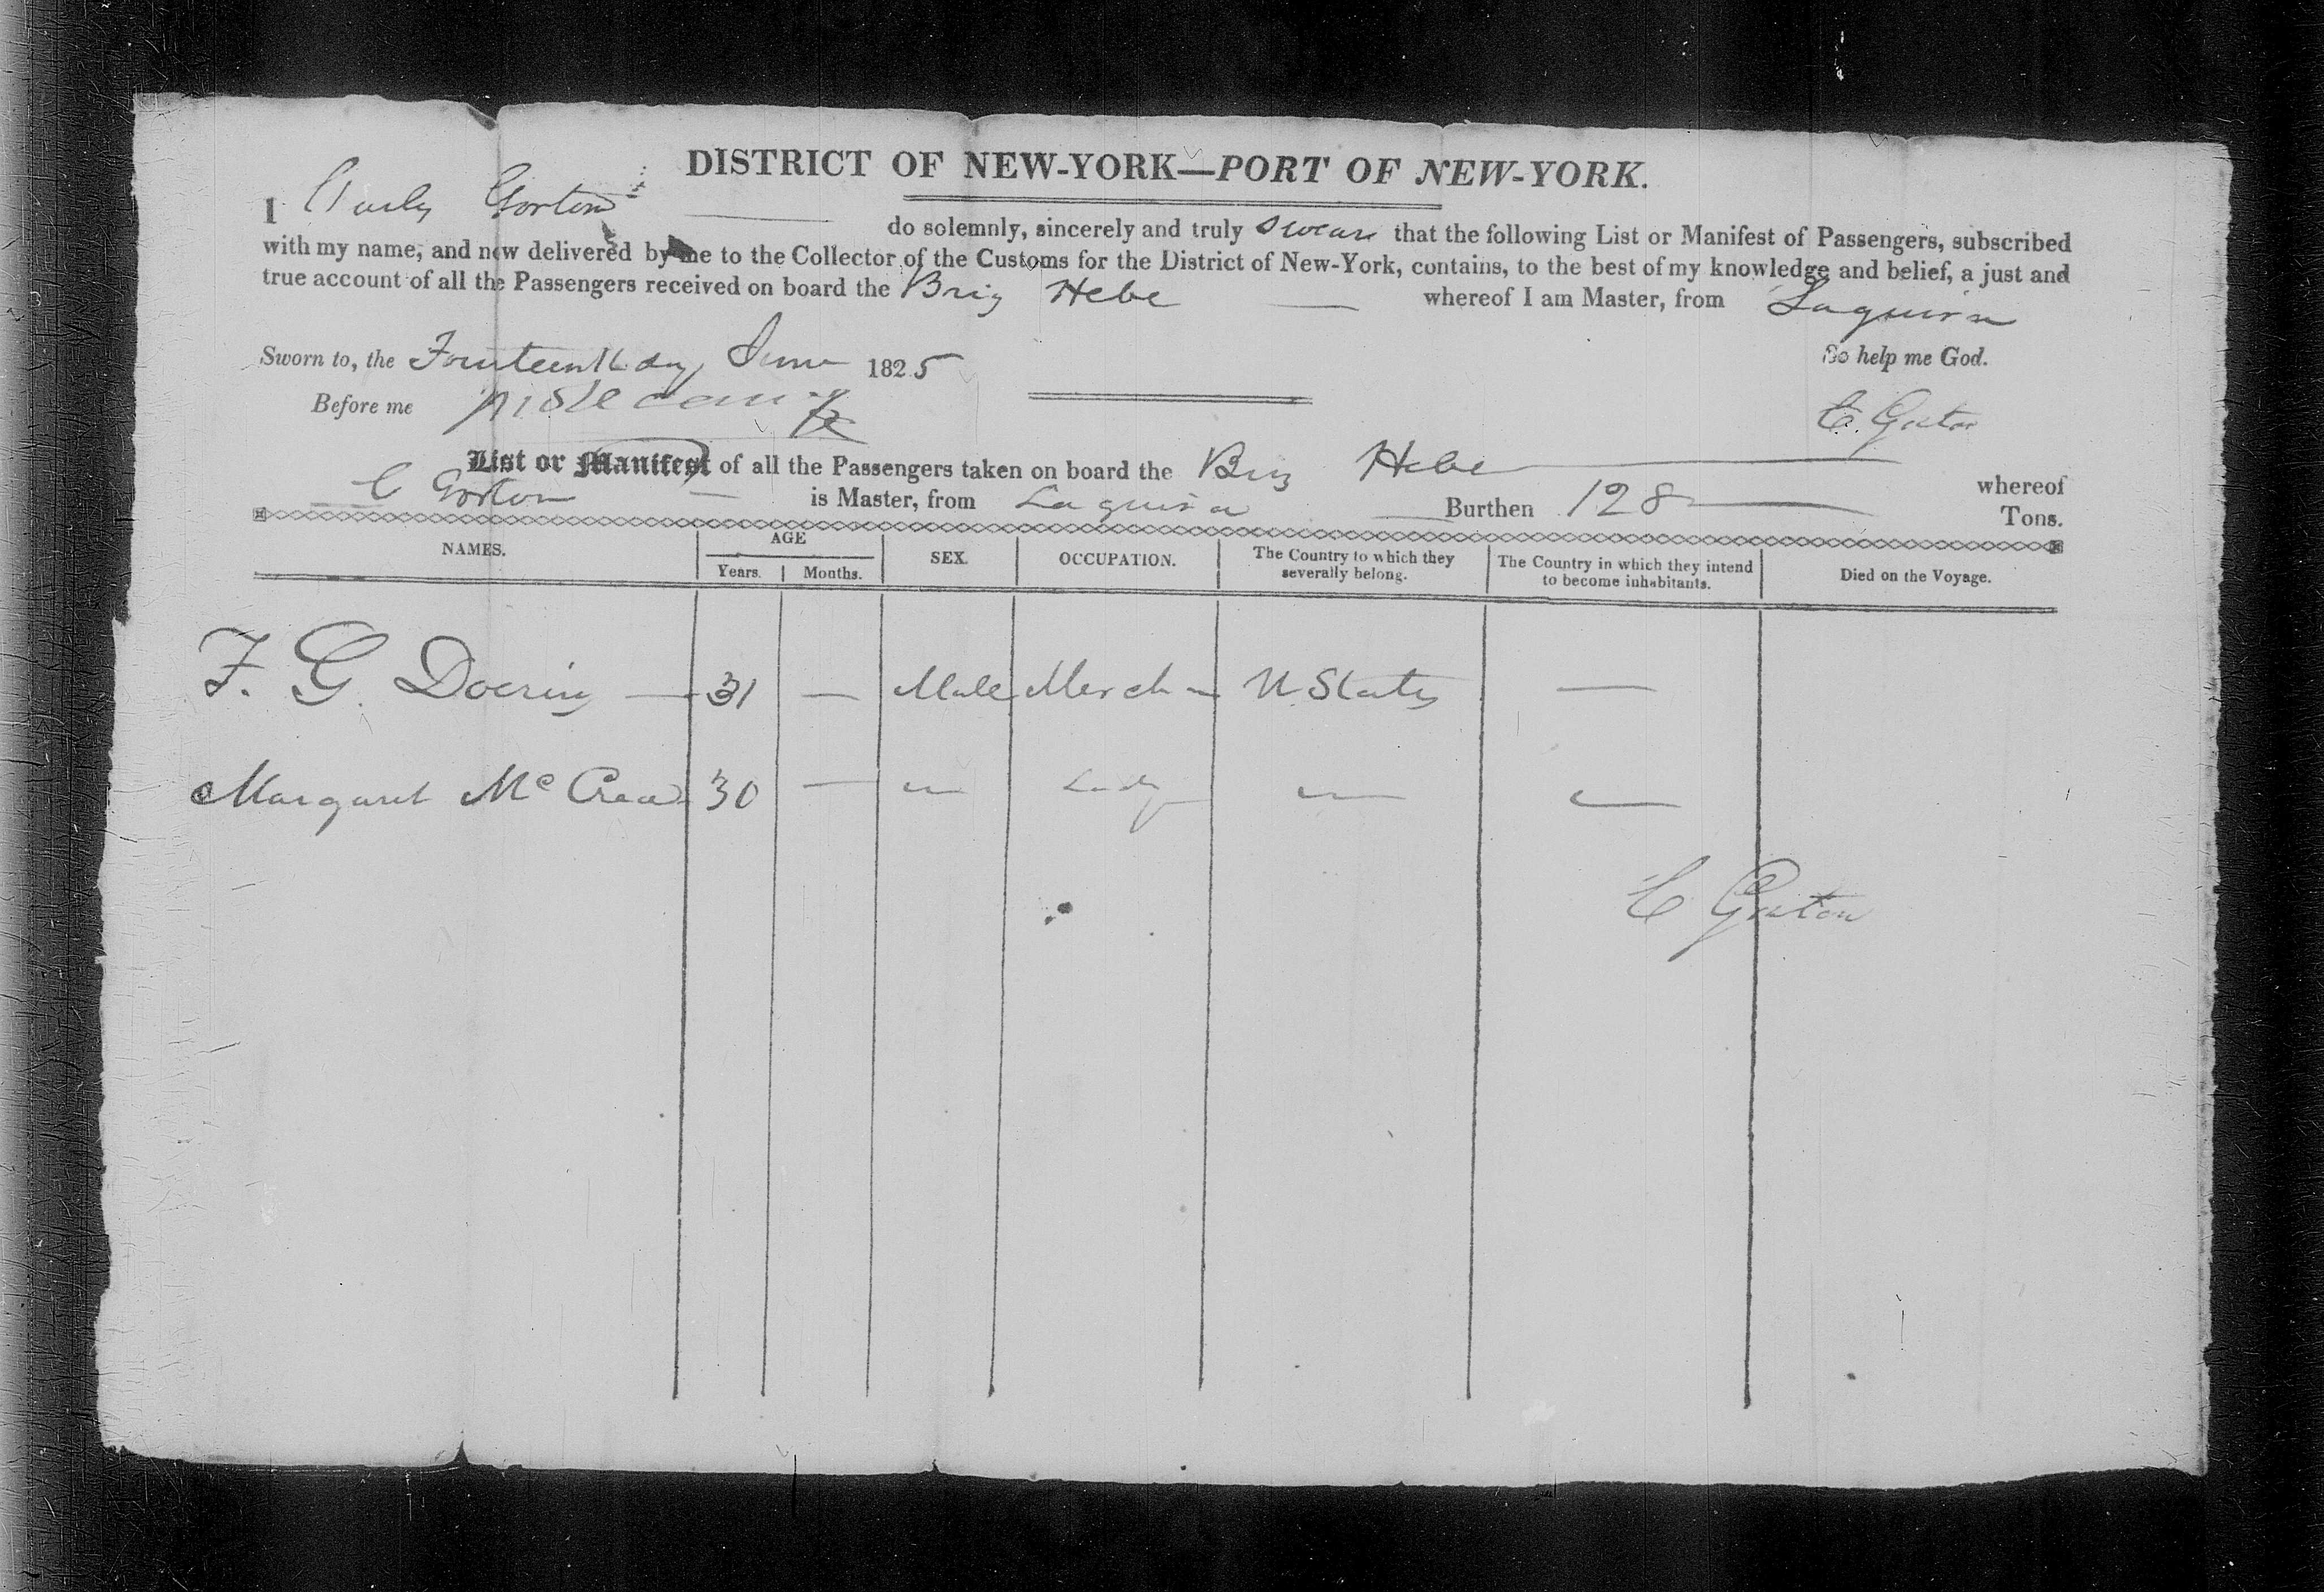 DISTRICT OF NEW-YORK—PORT OF NEW-YORK.
I Gorton do solemnly, sincerely and truly swear that the following List or Manifest of Passengers, subscribed
with my name, and now delivered by me to the Collector of the Customs for the District of New-York, contains, to the best of my knowledge and belief, a just and
true account of all the Passengers received on board the Brig Hebe — whereof I am Master, from Laguira
Sworn to, the Fourteenth day June 1825 So help me God.
Before me C. Gorton
List or Manifest of all the Passengers taken on board the Brig Hebe whereof
C Gorton — is Master, from Laguira Burthen 128 Tons.
NAMES. AGE Years. Months. SEX. OCCUPATION. The Country to which they severally belong. The Country in which they intend to become inhabitants. Died on the Voyage.
F. G. Doering — 31 — Male Merch U. States —
Margaret Mc Crea 30 — — Lady — —
C Gorton